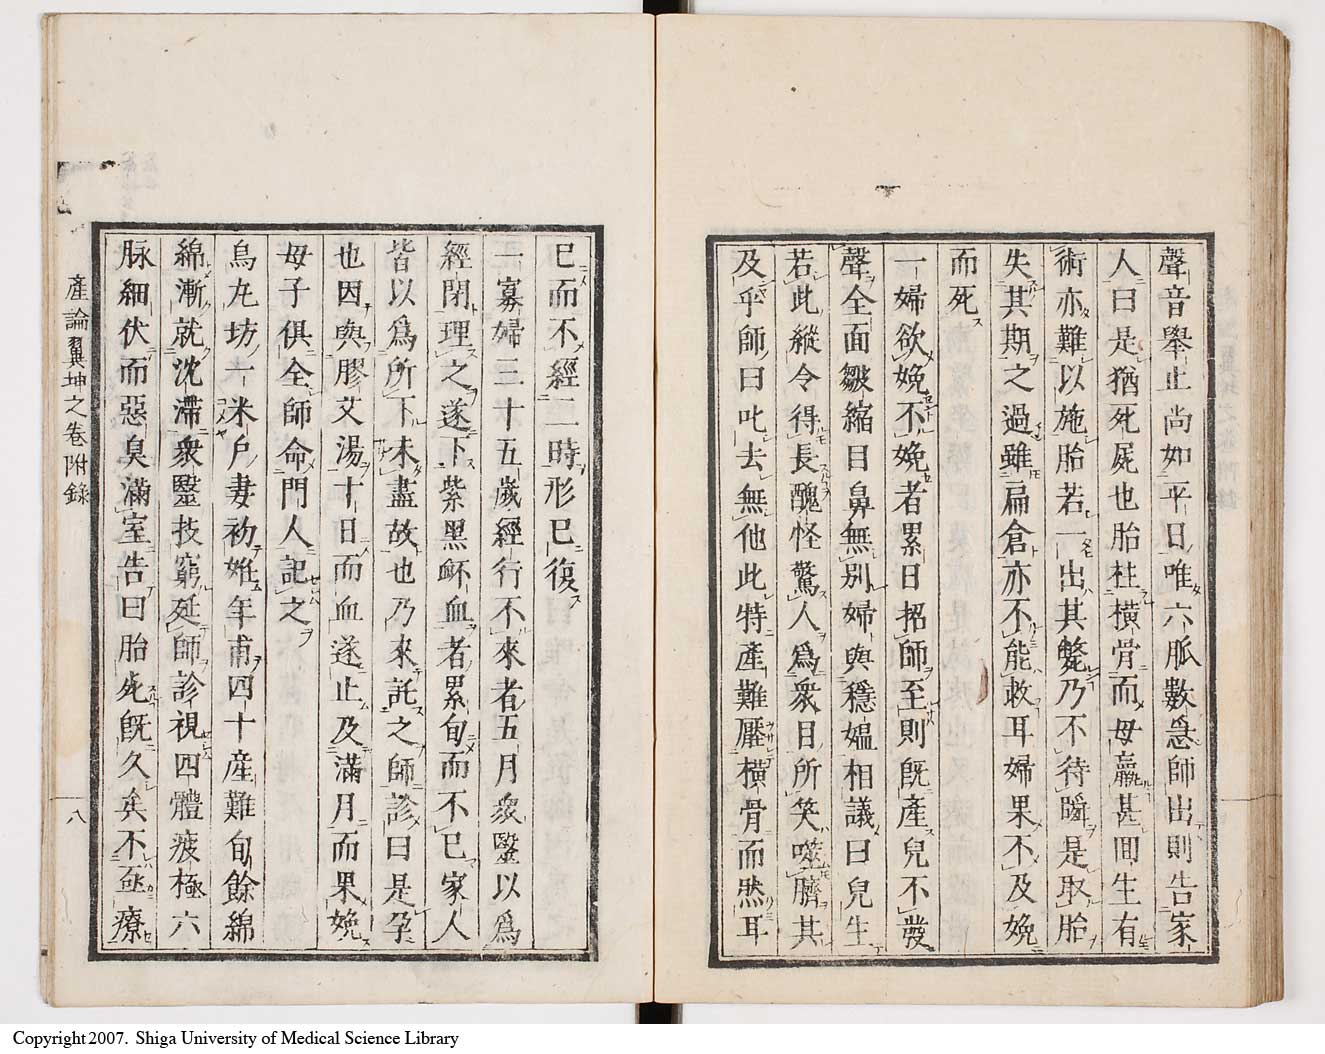 聲音擧止尚如平日唯六脈數急師出則告家
人曰是猶死屍也胎柱橫骨而母羸甚間生有
術亦難以施胎若一出其斃乃不待瞬是取胎
失其期之過雖扁倉亦不能救耳婦果不及娩
而死
一婦欲娩不娩者累日招師至則既產兒不發
聲全面皺縮目鼻無別婦與穩媼相議曰兒生
若此縱令得長醜怪驚人爲衆目所笑噬臍其
及乎師曰叱去無他此特產難壓橫骨而然耳
已而不經二時形已復
一寡婦三十五歲經行不來者五月衆醫以爲
經閉理之遂下紫黑衃血者累旬而不已家人
皆以爲所下未盡故也乃來託之師診曰是孕
也因與膠艾湯十日而血遂止及滿月而果娩
母子俱全師命門人記之
烏丸坊一米戶妻初娩年甫四十產難旬餘綿
綿漸就沈滯衆醫技窮延師診視四體疲極六
脉細伏而惡臭滿室告曰胎死既久矣不亟療
產論翼坤之卷附錄
八
Copyright 2007. Shiga University of Medical Science Library